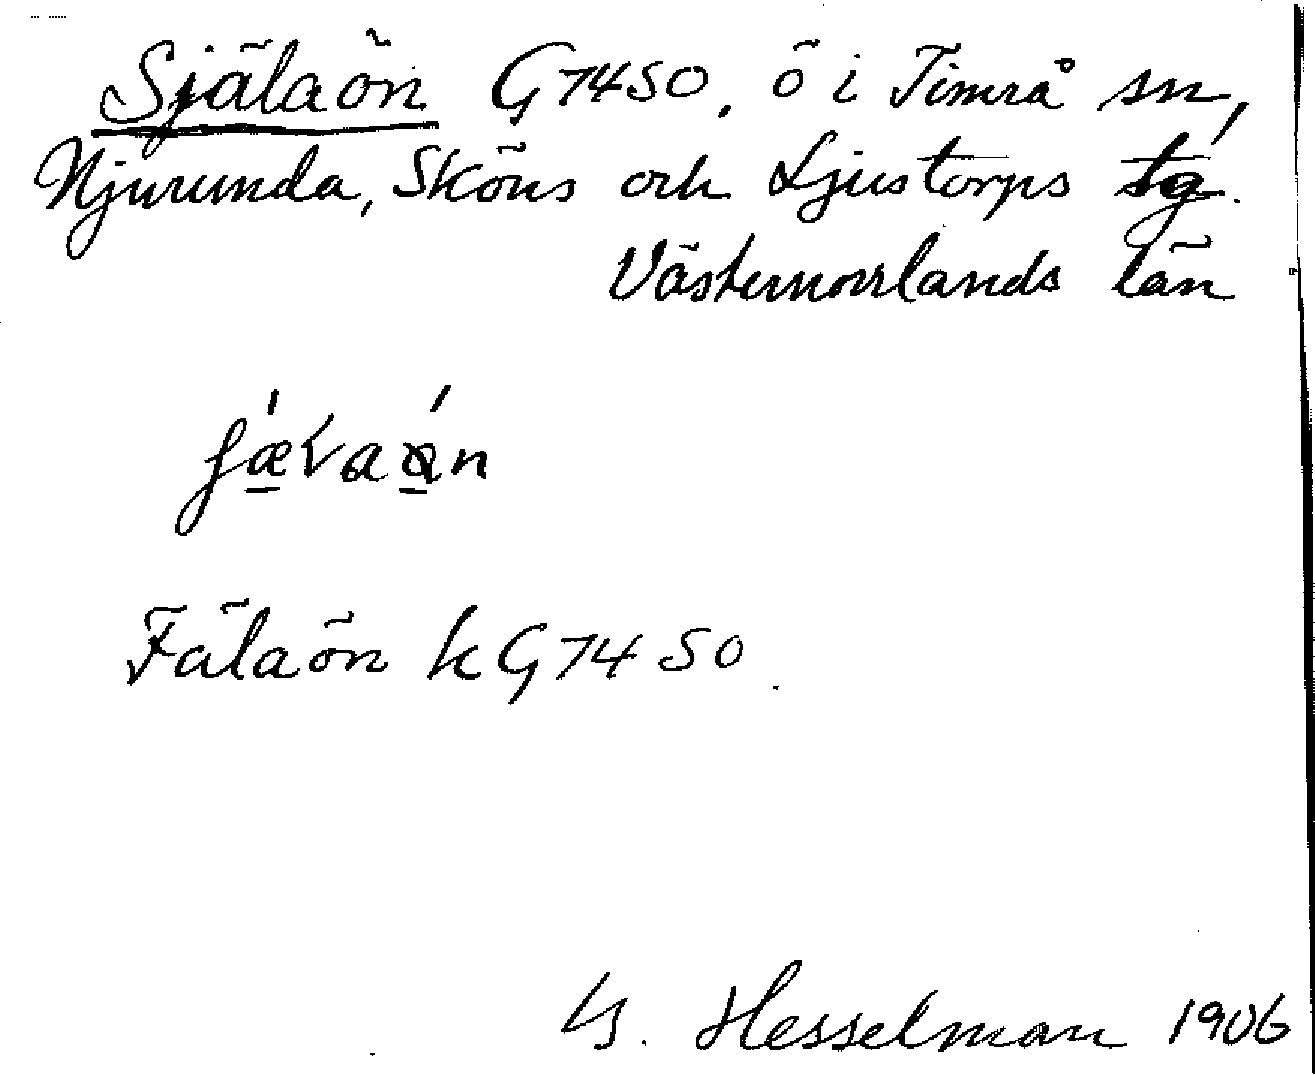 Själaön G7450, ö i Timrå sn,
Njurunda, Sköns och Ljustorps tg.
Västernorrlands län
Fälaön k G7450
Hesselman 1906